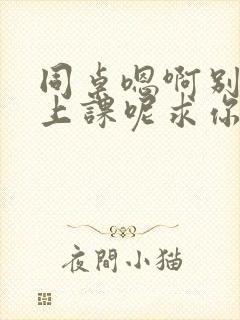 同桌嗯啊别
上課呢求你
夜間小猫